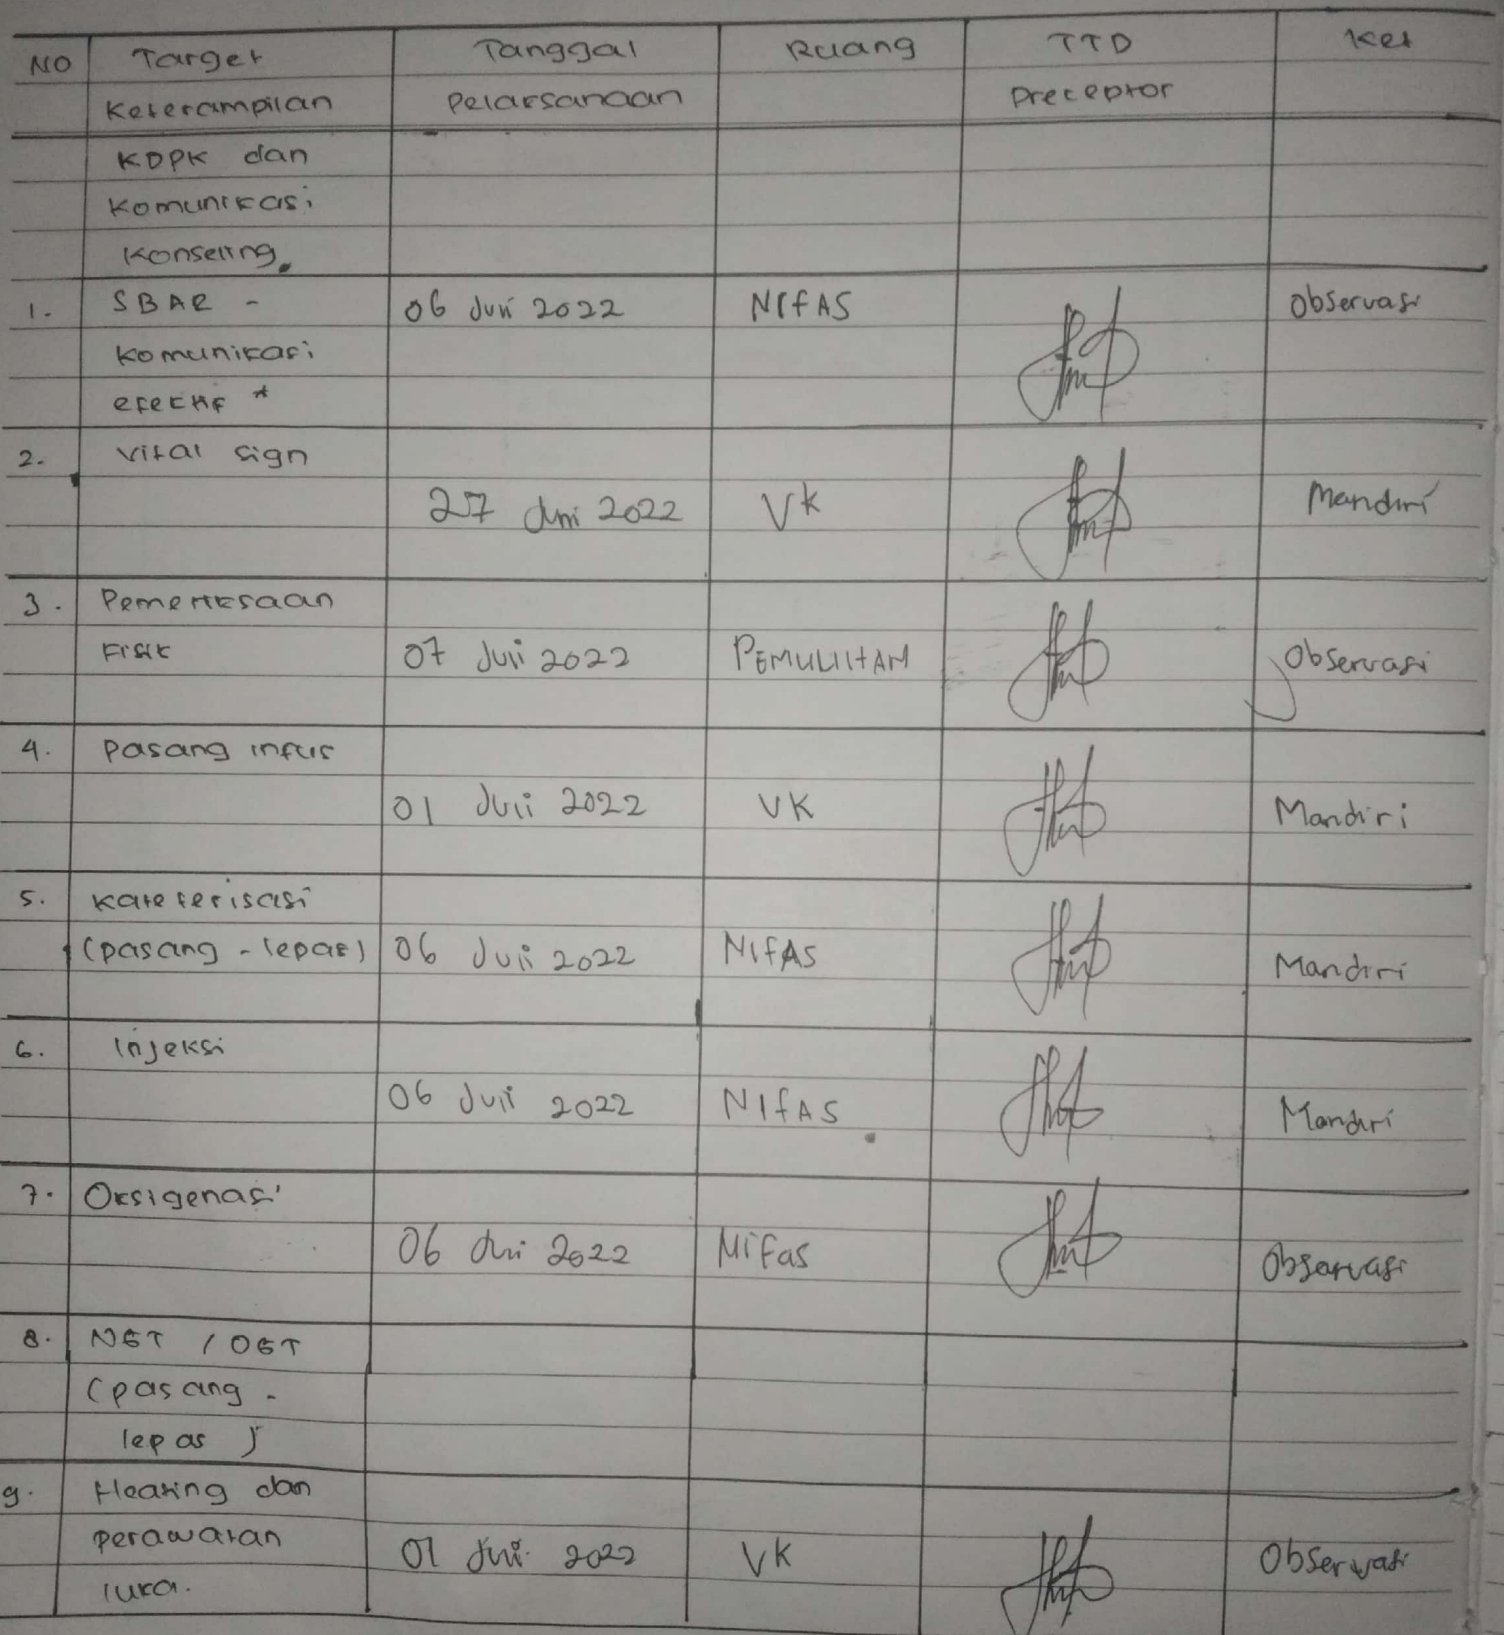 NO Target Tanggal Ruang TTD Ket
Keterampilan Pelaksanaan Preceptor
KDPK dan
Komunikasi
Konseling.
1. SBAR - 06 Juli 2022 NIfAS Observasi
Komunikasi
efektif *
2. Vital sign
27 Juni 2022 VK Mandiri
3. Pemeriksaan
Fisik 07 Juli 2022 PEMULIHAN Observasi
4. Pasang infus
01 Juli 2022 VK Mandiri
5. Kateterisasi
(pasang - lepas) 06 Juli 2022 NIfAS Mandiri
6. Injeksi
06 Juli 2022 NIfAS Mandiri
7. Oksigenasi
06 Juli 2022 Nifas Observasi
8. NGT / OGT
(pasang -
lepas )
9. Heating dan
perawatan 01 Juli 2022 VK Observasi
luka.